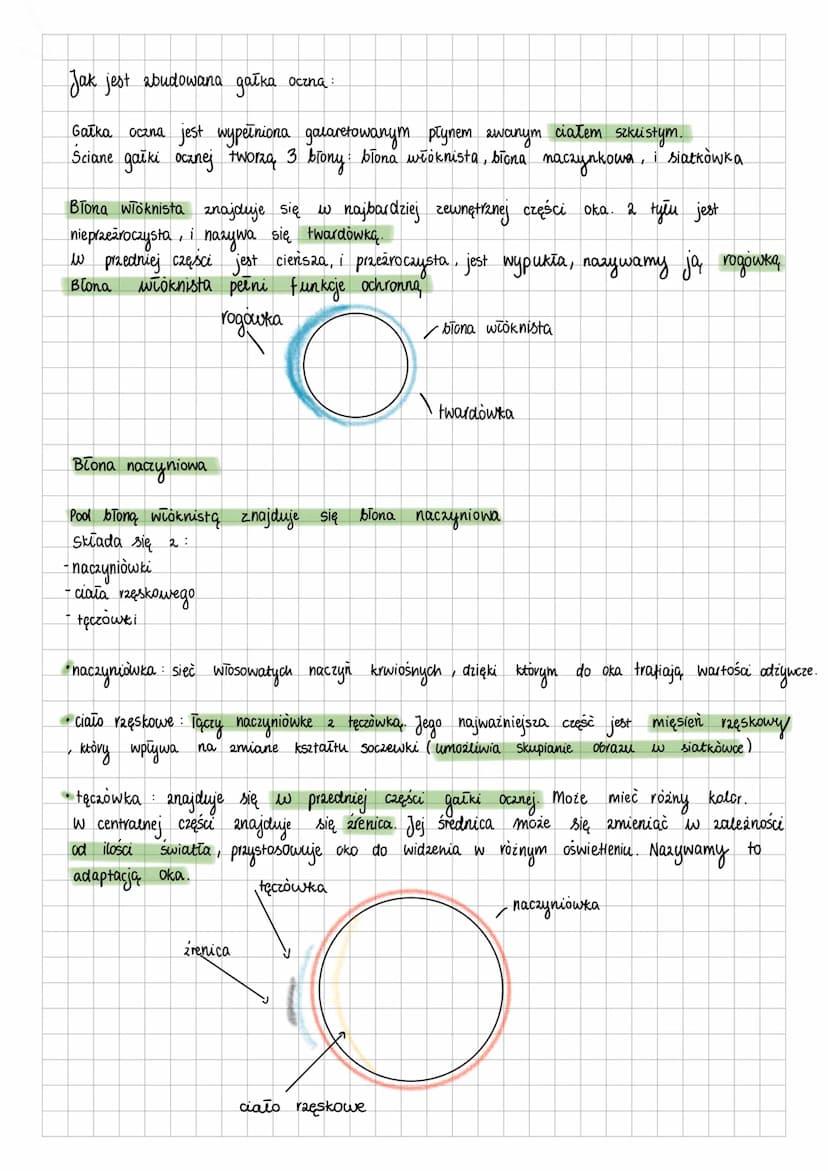 Jak jest zbudowana gałka oczna:
Gałka oczna jest wypełniona galaretowanym płynem zwanym ciałem szklistym.
Ściane gałki ocznej tworzą 3 błony: błona włóknista, błona naczynkowa, i siatkówka
Błona włóknista znajduje się w najbardziej zewnętrznej części oka. z tyłu jest
nieprzeźroczysta, i nazywa się twardówką.
w przedniej części jest cieńsza, i przeźroczysta, jest wypukła, nazywamy ją rogówką
Błona włóknista pełni funkcje ochronną
rogówka
błona włóknista
twardówka
Błona naczyniowa
Pod błoną włóknistą znajduje się błona naczyniowa
Składa się z:
-naczyniówki
-ciała rzęskowego
-tęczówki
•naczyniówka: sieć włosowatych naczyń krwiośnych, dzięki którym do oka trafiają wartości odżywcze.
•ciało rzęskowe: łączy naczyniówke z tęczówką. Jego najważniejsza część jest mięsień rzęskowy
, który wpływa na zmiane kształtu soczewki (umożliwia skupianie obrazu w siatkówce)
•tęczówka: znajduje się w przedniej części gałki ocznej. Może mieć różny kolor.
W centralnej części znajduje się źrenica. Jej średnica może się zmieniać w zależności
od ilości światła, przystosowuje oko do widzenia w różnym oświetleniu. Nazywamy to
adaptacją oka.
tęczówka
naczyniówka
źrenica
ciało rzęskowe